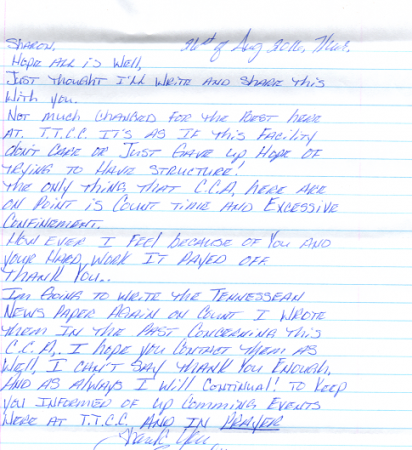 Sharon, of Aug 2016,
Hope all is well,
Just thought I'll write and share this
with you.
Not much changed for the best here
at, T.T.C.C. It's as if this facility
don't care or just gave up hope of
trying to have structure!
The only thing that C.C.A, here are
on point is count time and excessive
confinement.
How ever I feel because of you and
your hard, work it payed off
thank you..
I'm going to write the Tennessean
News Paper again on count I wrote
them in the past concerning this
C.C.A,. I hope you contact them as
well, I can't say thank you enough,
and as always I will continual! to keep
you informed of up comming events
here at T.T.C.C. and in prayer
Thank you,